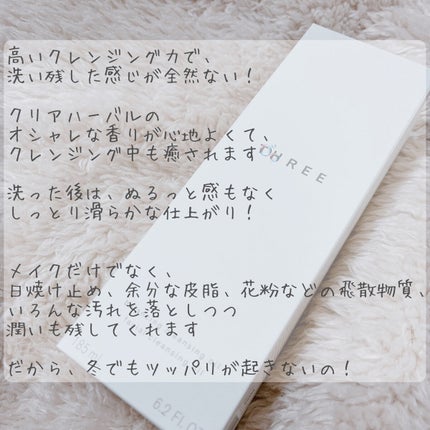 高いクレンジング力で、
洗い残した感じが全然ない！
クリアハーバルの
オシャレな香りが心地よくて、
クレンジング中も癒されます
THREE
洗った後は、ぬるっと感もなく
しっとり滑らかな仕上がり！
メイクだけでなく、
日焼け止め、余分な皮脂、花粉などの飛散物質、
いろんな汚れを落としつつ
潤いも残してくれます
だから、冬でもツッパリが起きないの！
185 mL
6.2 FL.OZ